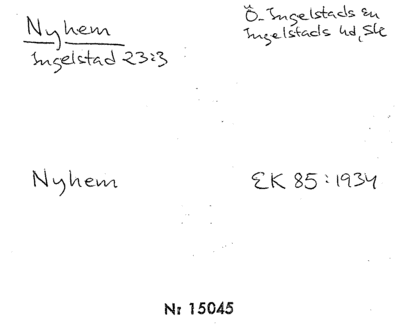 Nyhem
Ingelstad 23:3
Ö-Ingelstads sn
Ingelstads hd, Sk
Nyhem
EK 85:1934
Nr 15045